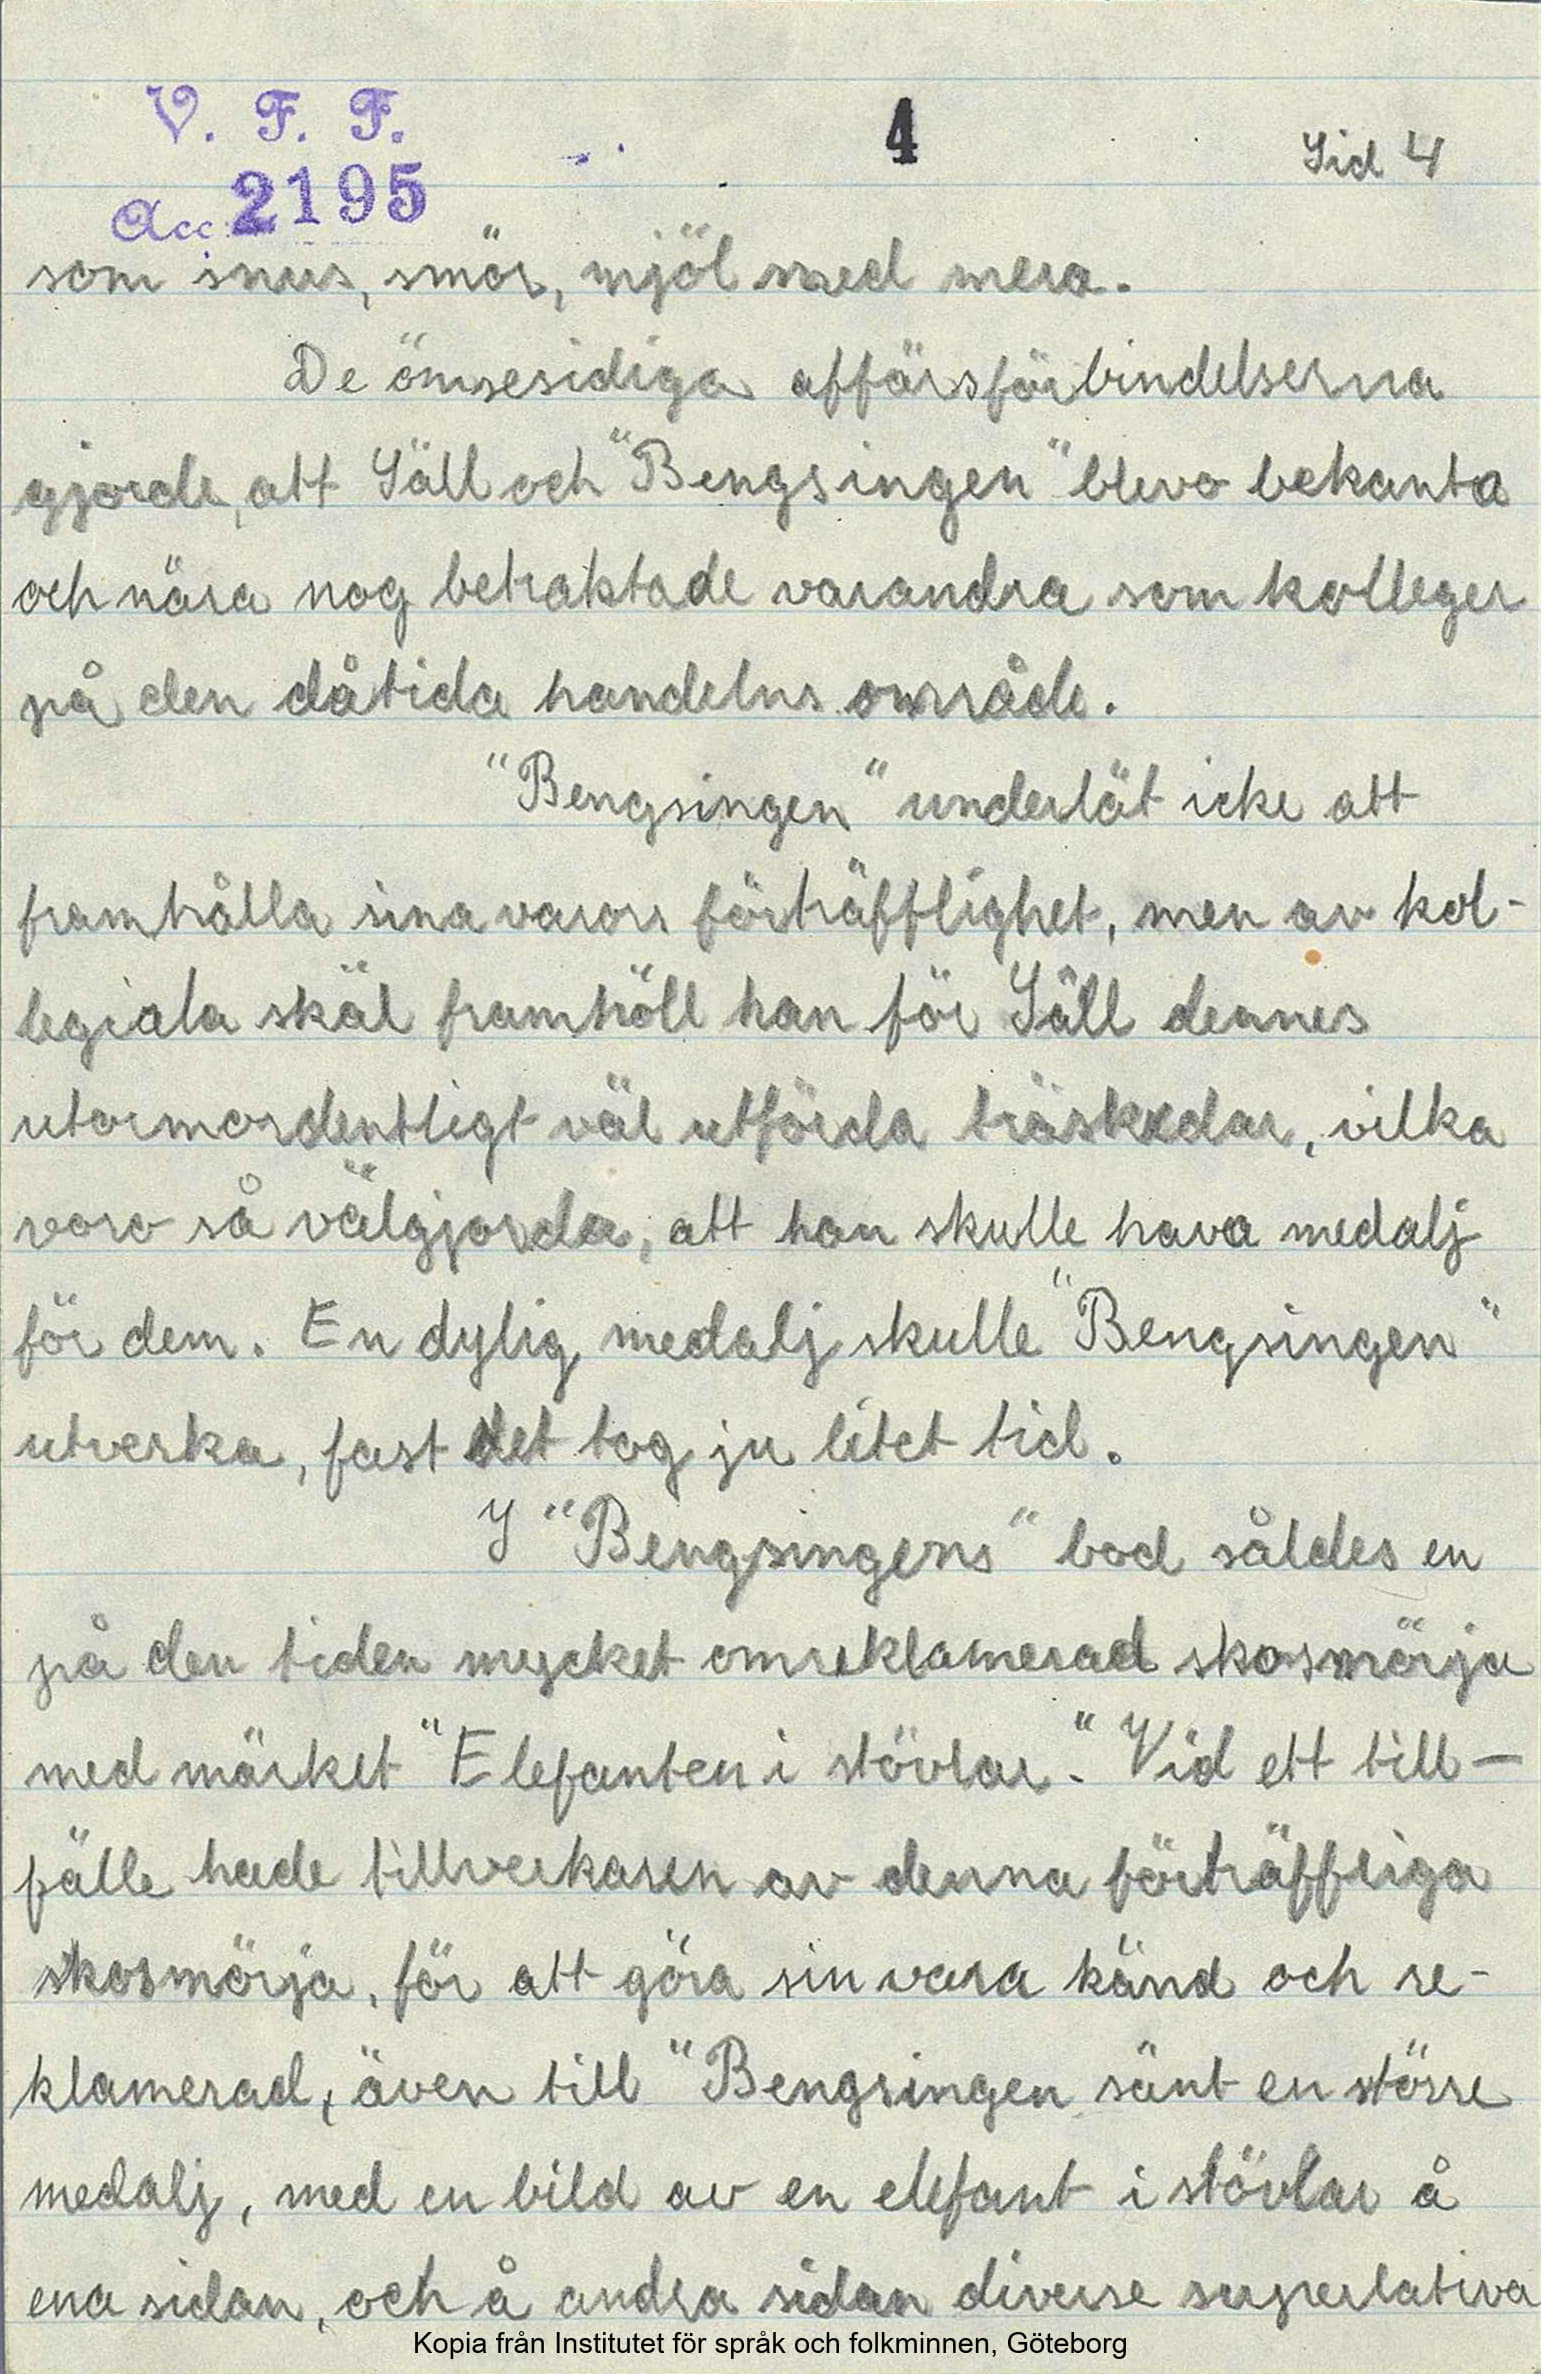 V. F. F.
4
Sid 4
Acc 2195
som snus, smör, mjöl med mera.
De ömsesidiga affärsförbindelserna
gjorde, att Säll och "Bengsingen" blevo bekanta
och nära nog betraktade varandra som kolleger
på den dåtida handelns område.
"Bengsingen" underlät icke att
framhålla sina varors förträfflighet, men av kol-
legiala skäl framhöll han för Säll dennes
utormordentligt väl utförda träskedar, vilka
voro så välgjorda, att han skulle hava medalj
för dem. En dylig medalj skulle "Bengsingen"
utverka, fast det tog ju litet tid.
I "Bengsingens" bod såldes en
på den tiden mycket omreklamerad skosmörja
med märket "Elefanten i stövlar." Vid ett till-
fälle hade tillverkaren av denna förträffliga
skosmörja, för att göra sin vara känd och re-
klamerad, även till "Bengsingen sänt en större
medalj, med en bild av en elefant i stövlar å
ena sidan, och å andra sidan diverse superlativa
Kopia från Institutet för språk och folkminnen, Göteborg